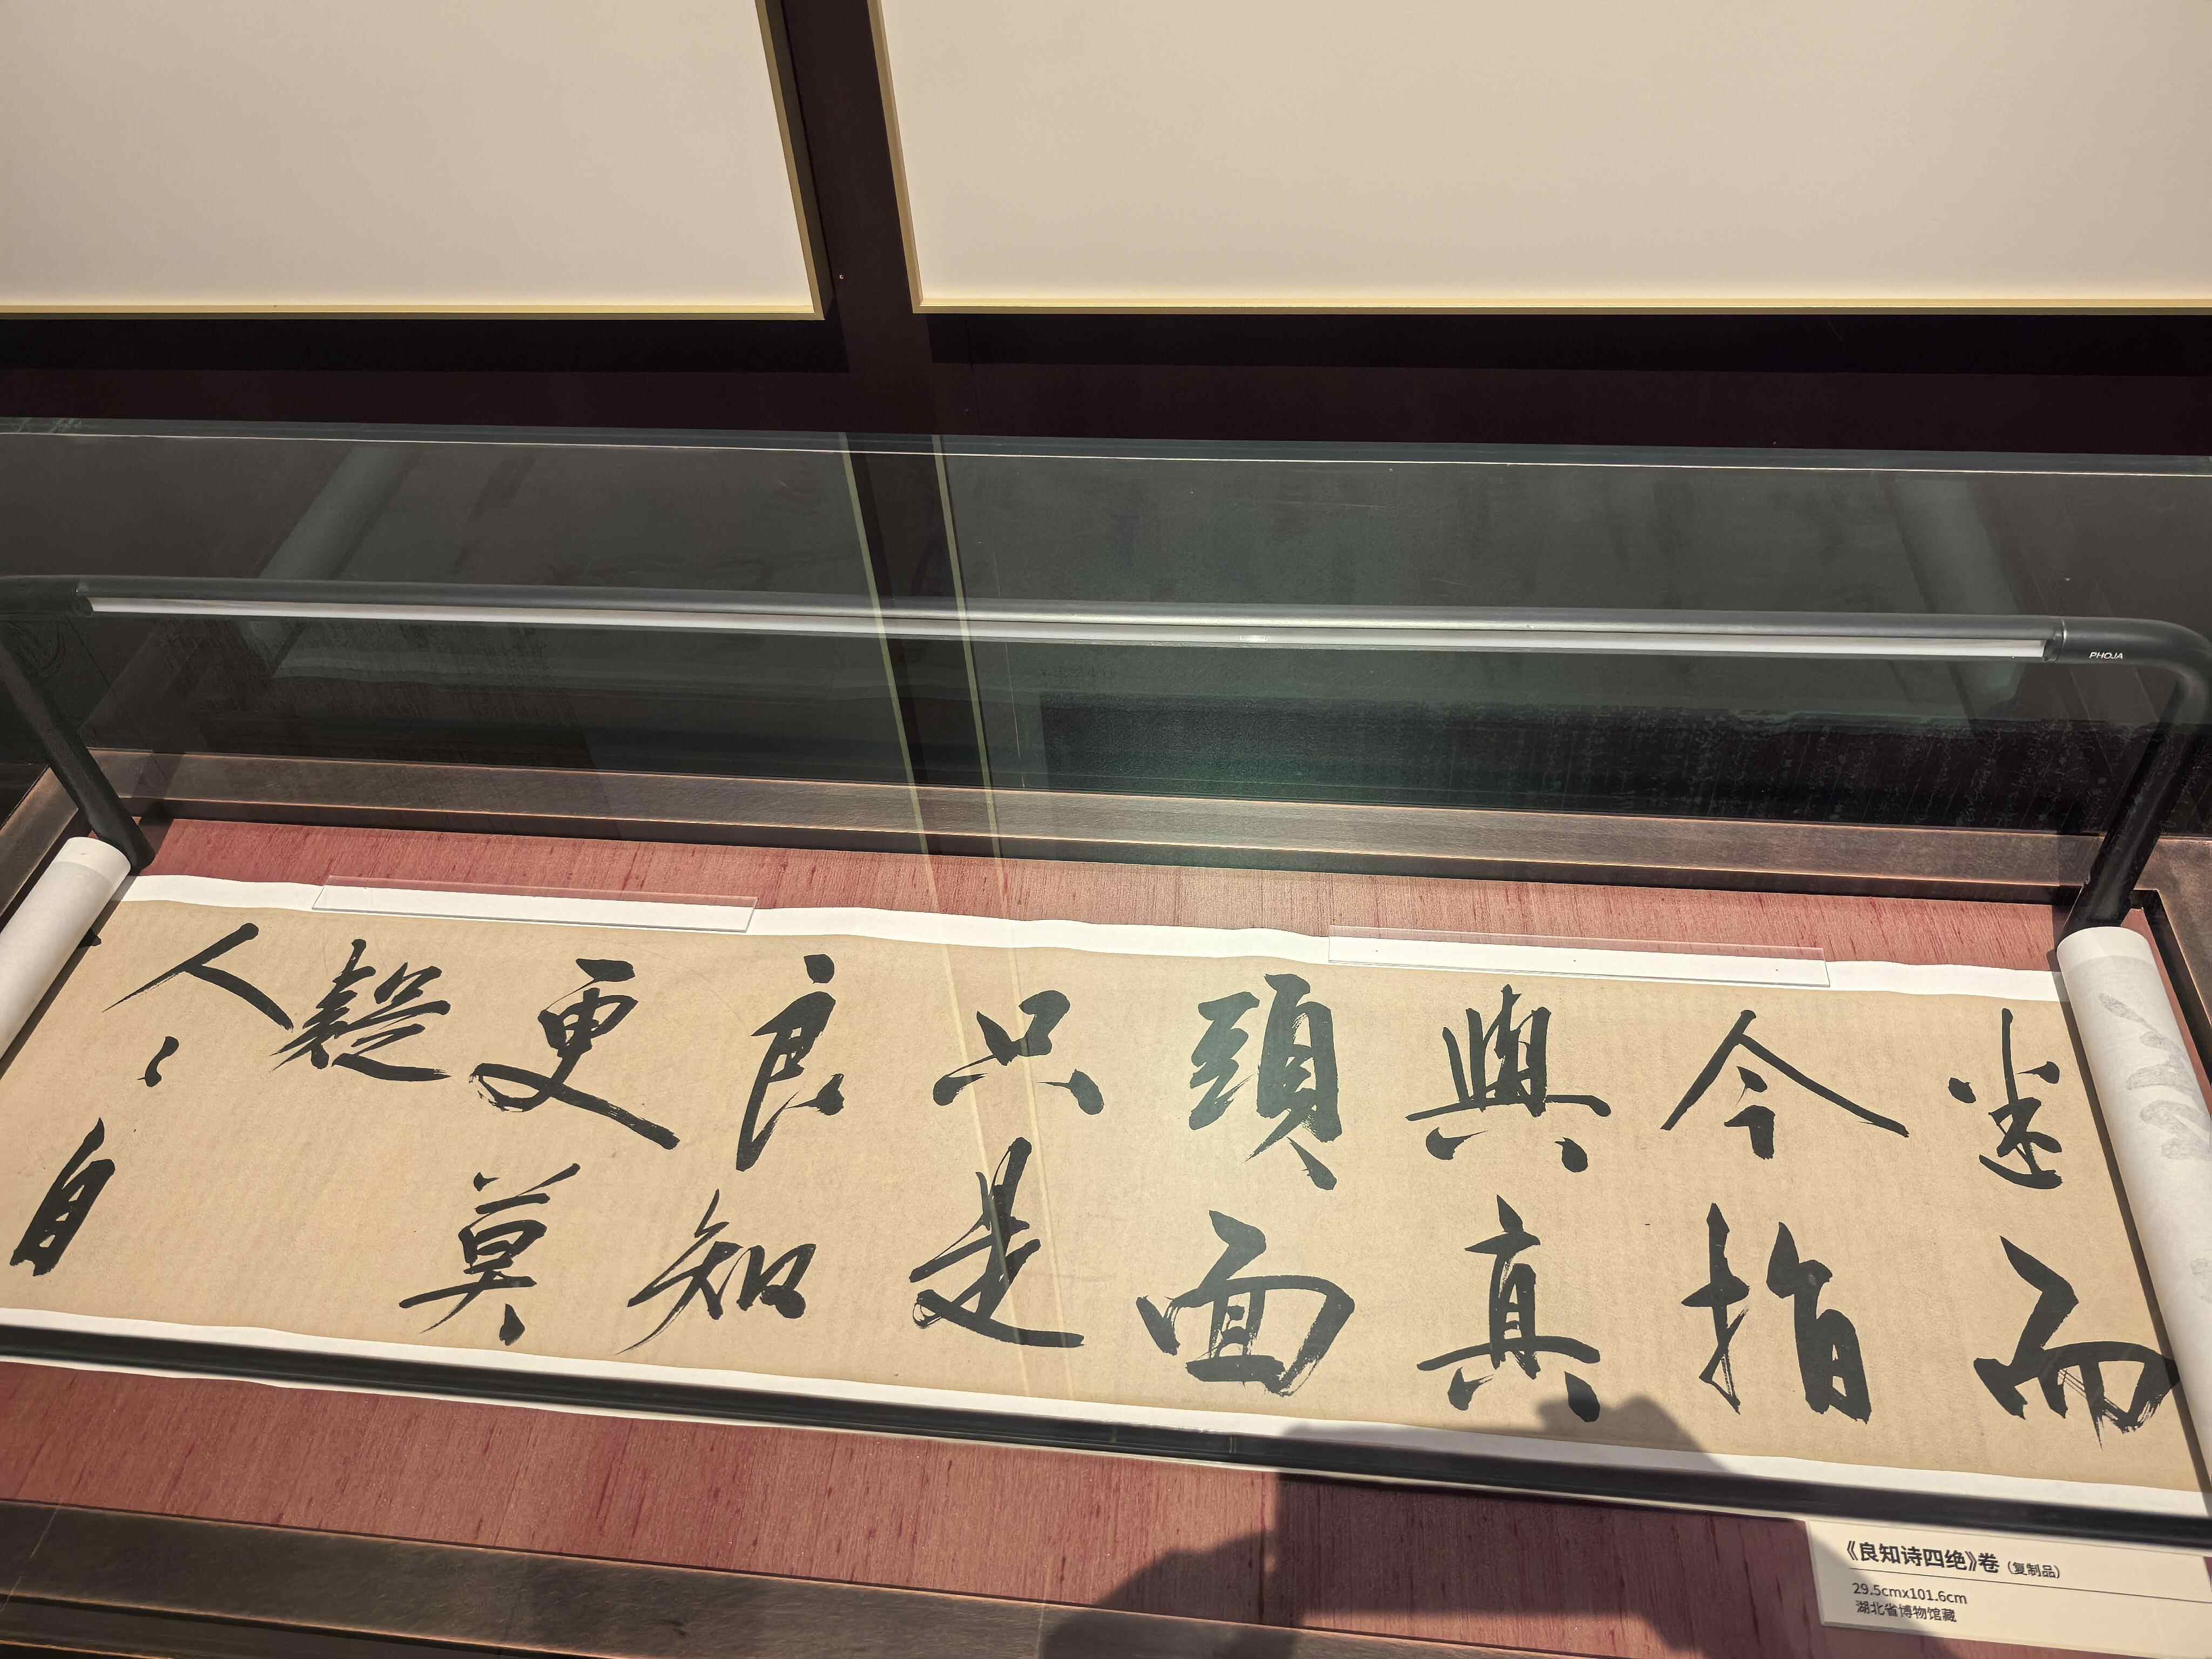 迷而
今指
與真
頭面
只是
良知
更莫
疑
人〻自
《良知诗四绝》卷（复制品）
29.5cmx101.6cm
湖北省博物馆藏
PHOJA